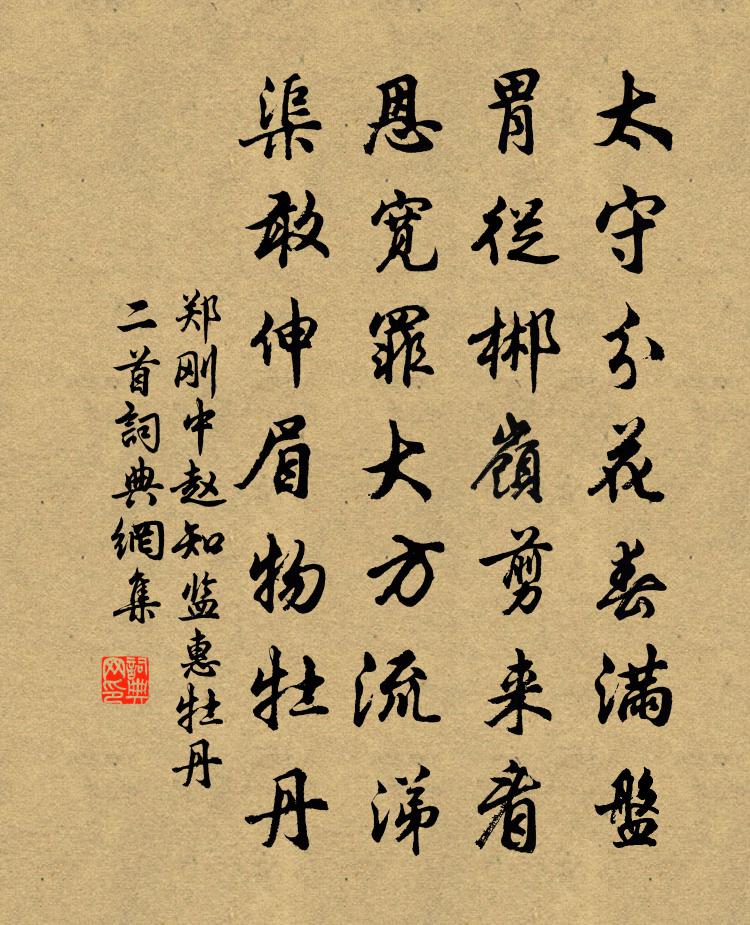 太守分花春满盤
胃從郴嶺剪来看
恩宽罪大方流涕
渠敢伸眉物牡丹
郑刚中赵知监惠牡丹
二首詞典網集
詞典网印